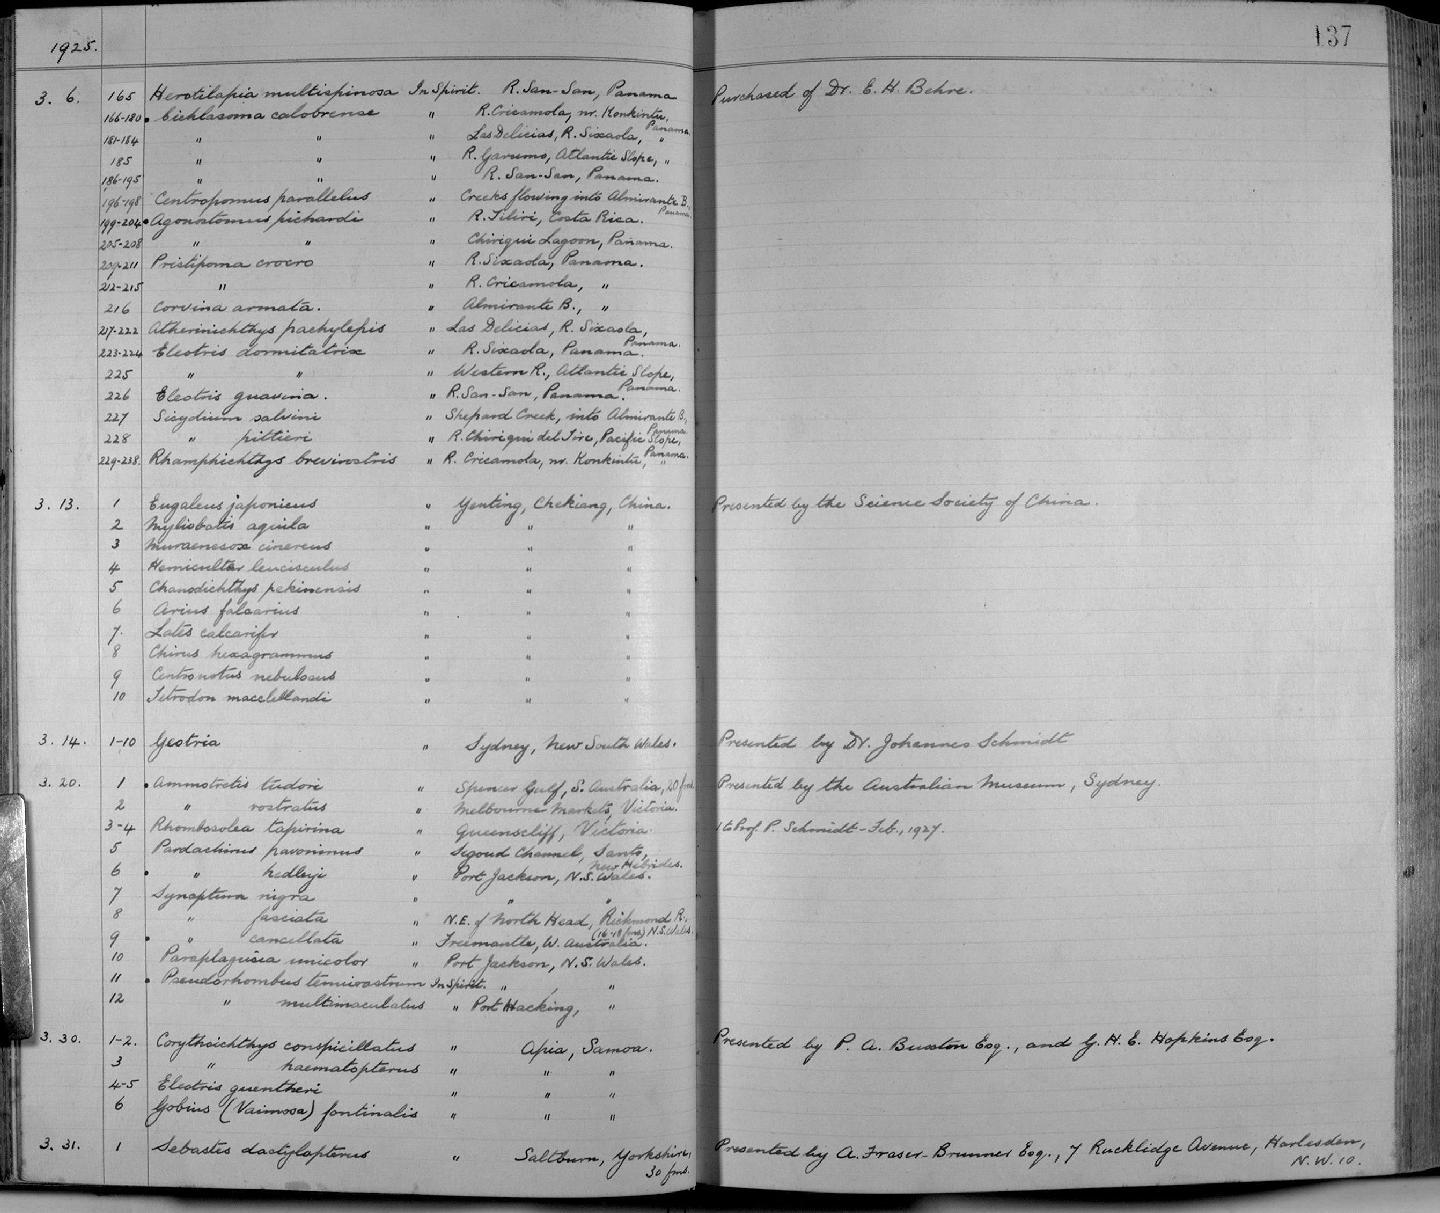 1925.
137
3. 6. 165 Herotilapia multispinosa In Spirit. R. San-San, Panama Purchased of Dr. E. H. Behre.
166-180 • Cichlasoma calobrense " R. Cricamola, nr. Konkintu, Panama.
181-184 " " " Las Delicias, R. Sixaola, "
185 " " " R. Garumo, Atlantic Slope, "
186-195 " " " R. San-San, Panama.
196-198 Centropomus parallelus " Creeks flowing into Almirante B., Panama.
199-204 • Agonostomus pichardi " R. Tiliri, Costa Rica.
205-208 " " " Chiriqui Lagoon, Panama.
209-211 Pristipoma crocro " R. Sixaola, Panama.
212-215 " " R. Cricamola, "
216 Corvina armata. " Almirante B., "
217-222 Atherinichthys pachylepis " Las Delicias, R. Sixaola, Panama.
223-224 Eleotris dormitatrix " R. Sixaola, Panama.
225 " " " Western R., Atlantic Slope, Panama.
226 Eleotris guavina. " R. San-San, Panama.
227 Sicydium salvini " Shepard Creek, into Almirante B., Panama
228 " pittieri " R. Chiriqui del Tire, Pacific Slope, Panama.
229-238. Rhamphichthys brevirostris " R. Cricamola, nr. Konkintu, "
3. 13. 1 Eugaleus japonicus " Yenting, Chekiang, China. Presented by the Science Society of China.
2 Myliobatis aquila " " "
3 Muraenesox cinereus " " "
4 Hemiculter leucisculus " " "
5 Chanodichthys pekinensis " " "
6 Arius falcarius " " "
7. Lates calcarifer " " "
8 Chirus hexagrammus " " "
9 Centronotus nebulosus " " "
10 Tetrodon macclellandi " " "
3. 14. 1-10 Geotria " Sydney, New South Wales. Presented by Dr. Johannes Schmidt
3. 20. 1 • Ammotretis tudori " Spencer Gulf, S. Australia, 20 fms. Presented by the Australian Museum, Sydney.
2 " rostratus " Melbourne Markets, Victoria.
3-4 Rhombosolea tapirina " Queenscliff, Victoria. 1 to Prof. P. Schmidt - Feb., 1927.
5 Pardachirus pavoninus " Segond Channel, Santo, New Hebrides.
6 • " hedleyi " Port Jackson, N.S. Wales.
7 Synaptura nigra " " "
8 " fasciata " N.E. of North Head, Richmond R., (16-18 fms) N.S. Wales.
9 • " cancellata " Freemantle, W. Australia.
10 Paraplagusia unicolor " Port Jackson, N.S. Wales.
11 • Pseudorhombus tenuirastrum In Spirit. " "
12 " multimaculatus " Port Hacking, "
3. 30. 1-2. Corythoichthys conspicillatus " Apia, Samoa. Presented by P. A. Buxton Esq., and G. H. E. Hopkins Esq.
3 " haematopterus " " "
4-5 Eleotris guentheri " " "
6 Gobius (Vaimosa) fontinalis " " "
3. 31. 1 Sebastes dactylopterus " Saltburn, Yorkshire, 30 fms. Presented by A. Fraser-Brunner Esq., 7 Rucklidge Avenue, Harlesden,
N.W. 10.